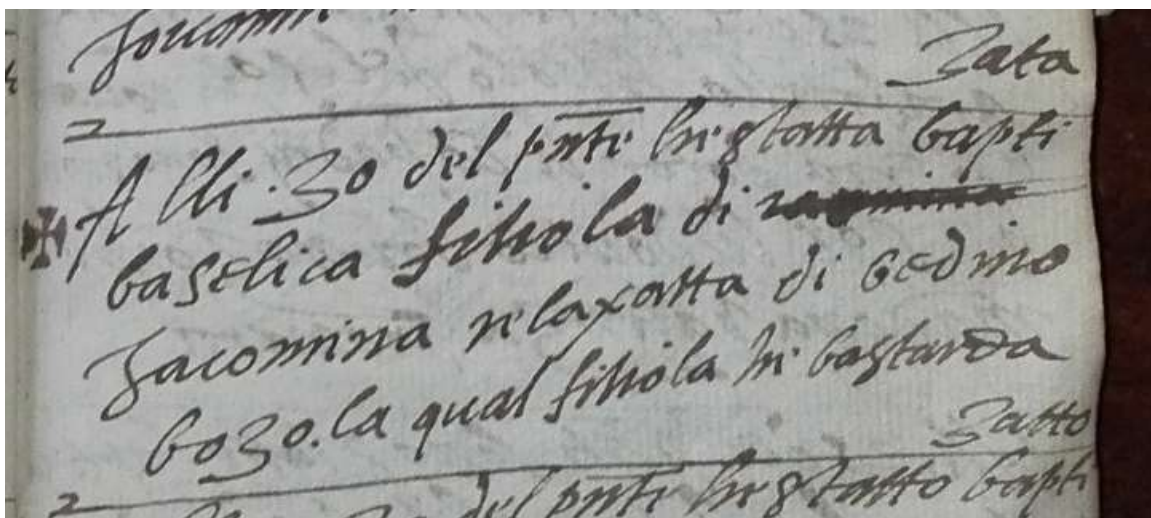 Jacomin
Zata
Alli .30 del pnte he statta bapti
baselica filiola di
Jacomina relaxatta di bedino
bozo. la qual filiola he bastarda
Zatto
del pnte he statto bapti